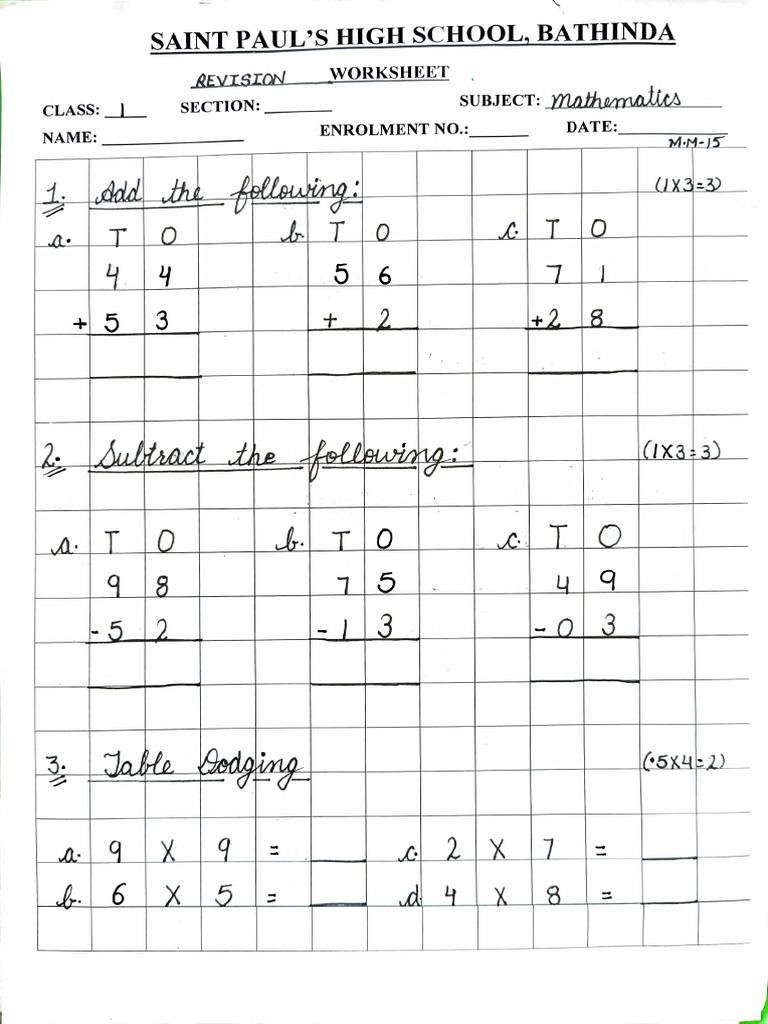 SAINT PAUL'S HIGH SCHOOL, BATHINDA
REVISION WORKSHEET
CLASS: 1 SECTION: ________ SUBJECT: Mathematics
NAME: ________ ENROLMENT NO.: ________ DATE: ________
M.M-15
1. Add the following: (1X3=3)
a. T O b. T O c. T O
4 4 5 6 7 1
+ 5 3 + 2 +2 8
2. Subtract the following: (1X3=3)
a. T O b. T O c. T O
9 8 7 5 4 9
- 5 2 - 1 3 - 0 3
3. Table Dodging (.5X4=2)
a. 9 X 9 = ____ c. 2 X 7 = ____
b. 6 X 5 = ____ d. 4 X 8 = ____